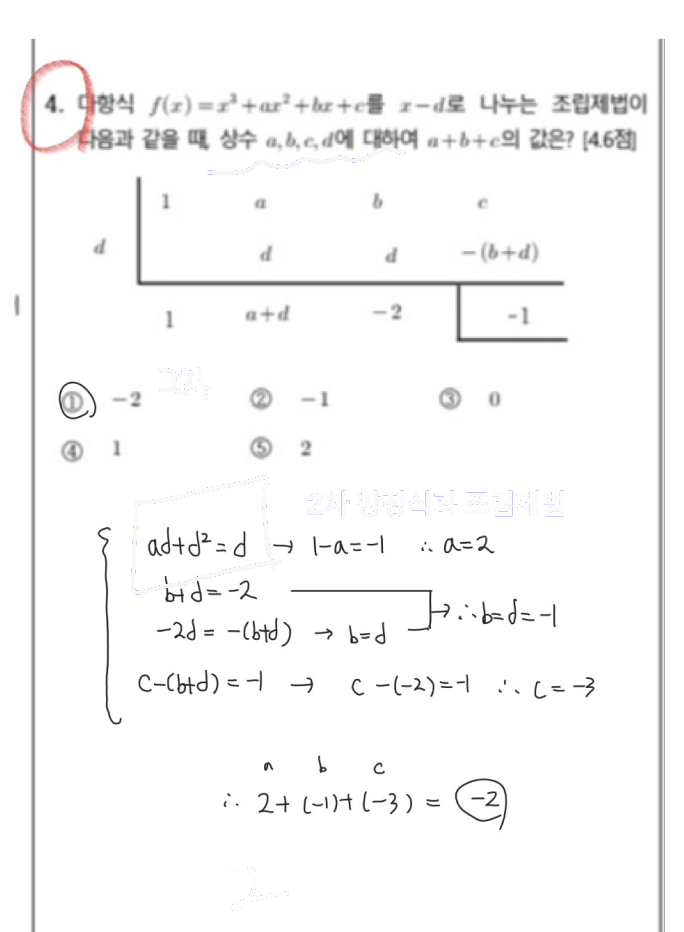 4. 다항식 f(x)=x³+ax²+bx+c를 x-d로 나누는 조립제법이
다음과 같을 때, 상수 a, b, c, d에 대하여 a+b+c의 값은? [4.6점]
1 a b c
d d d -(b+d)
1 a+d -2 -1
① -2 ② -1 ③ 0
④ 1 ⑤ 2
ad+d²=d → 1-a=-1 ∴ a=2
b+d=-2
→ ∴ b=d=-1
-2d=-(b+d) → b=d
c-(b+d)=-1 → c-(-2)=-1 ∴ c=-3
a b c
∴ 2+(-1)+(-3)=-2